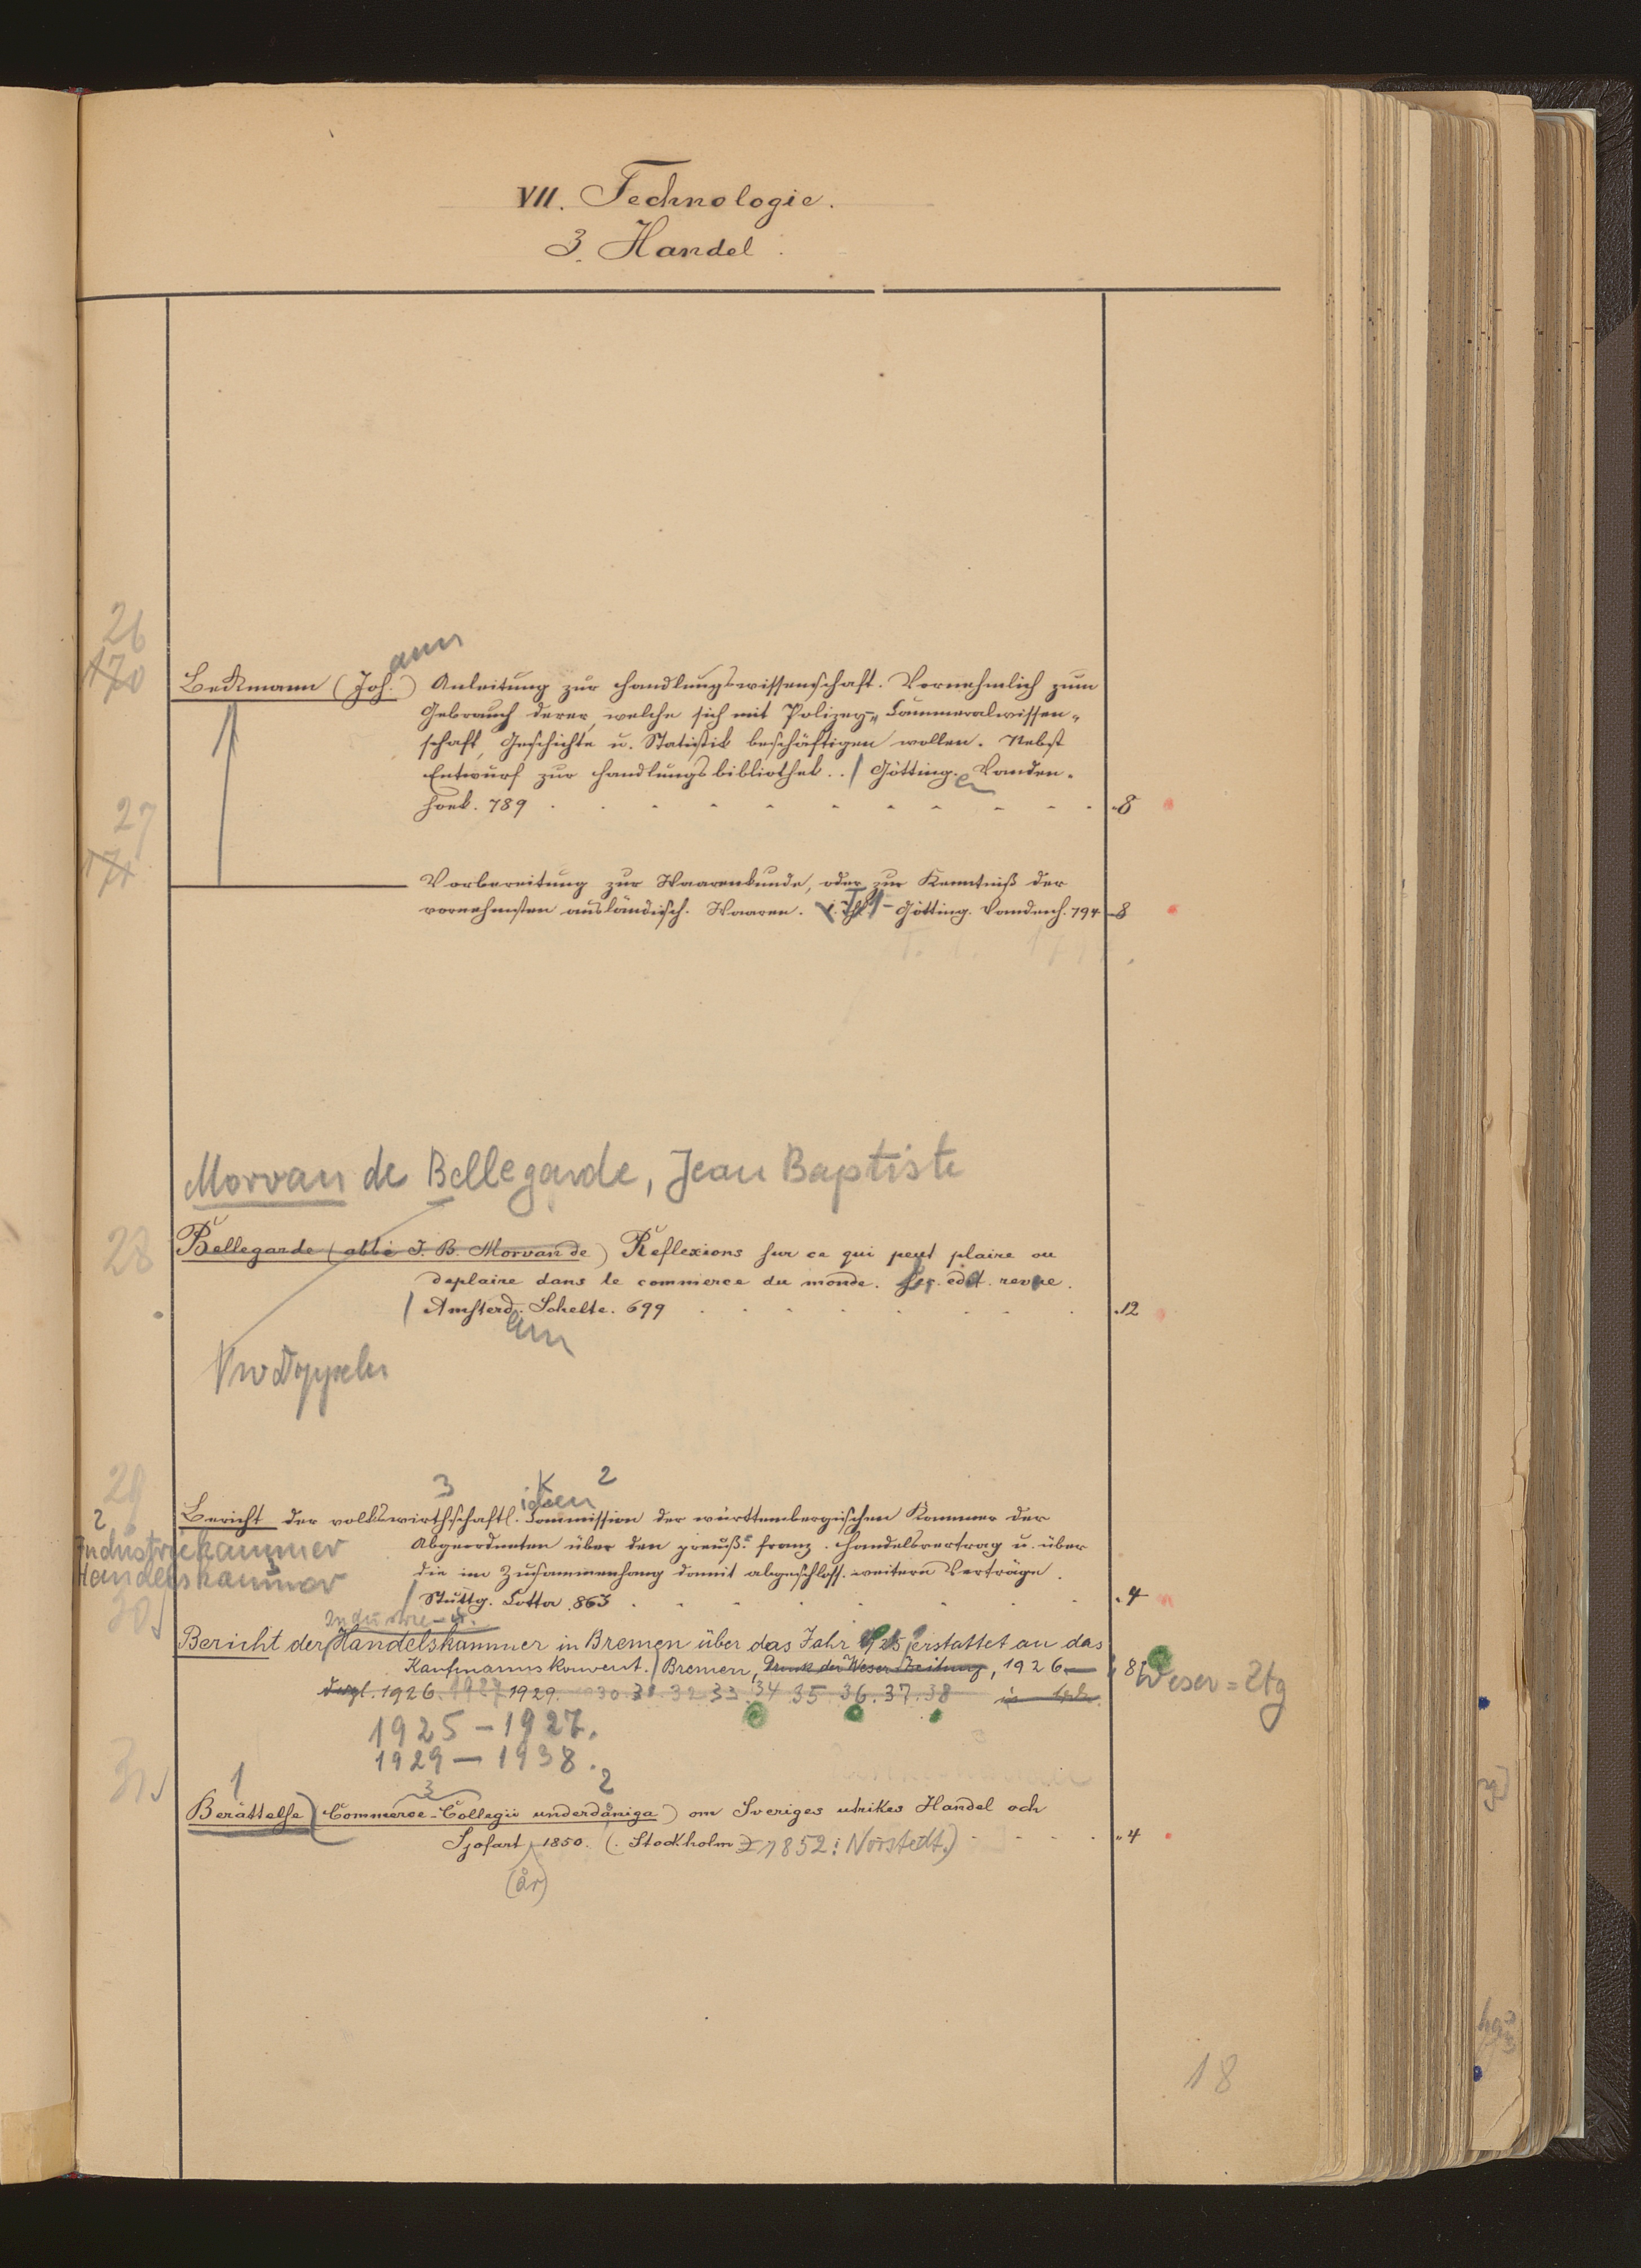 VII. Technologie.
3. Handel.
26
170
ann
Beckmann (Joh.) Anleitung zur Handlungswissenschaft. Vornehmlich zum
Gebrauch derer, welche sich mit Polizey-, Cammeralwissen-
schaft, Geschichte u. Statistik beschäftigen wollen. Nebst
Entwurf zur Handlungsbibliothek.. / Götting. Vanden-
hoek. 789 8
27
171
Vorbereitung zur Waarenkunde, oder zur Kenntniß der
vornehmsten ausländisch. Waaren. Götting. Vandenh. 794 8
Morvan de Bellegarde, Jean Baptiste
28
Bellegarde (abbé J. B. Morvan de) Reflexions sur ce qui peut plaire ou
deplaire dans le commerce du monde. edit. revue.
/ Amsterd. Schelte. 699 12
am
Vw Doppeln
29
3 K 2
ischen
Bericht der volkswirthschaftl. Commission der württembergischen Kammer der
2
Industriekammer
Abgeordneten über den preuß. franz. Handelsvertrag u. über
Handelskammer
die im Zusammenhang damit abgeschloss. weitern Verträge.
/ Stuttg. Cotta. 863 4
30
Industrie- u.
Bericht der Handelskammer in Bremen über das Jahr 1925 erstattet an das
Kaufmannskonvent. / Bremen, Druck der Weser Zeitung, 1926 8
Weser=Ztg
Desgl. 1926. 1927 1929. 1930. 31. 32. 33. 34. 35. 36. 37. 38
1925 - 1927.
1929 - 1938.
31
1 3 2
Berättelse (Commerce-Collegii underdåniga) om Sveriges utrikes Handel och
Sjofart 1850. (. Stockholm 1852: Norstedt.) 4
(år)
18